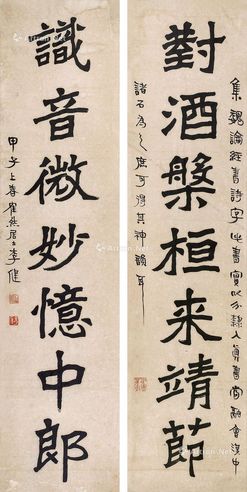 對酒槃桓来靖節
集魏論經書詩字此書實以分隸入真書尚融會漢中
諸石為之庶可得其神韻耳
識音微妙憶中郎
甲子上春瞿然居士李健